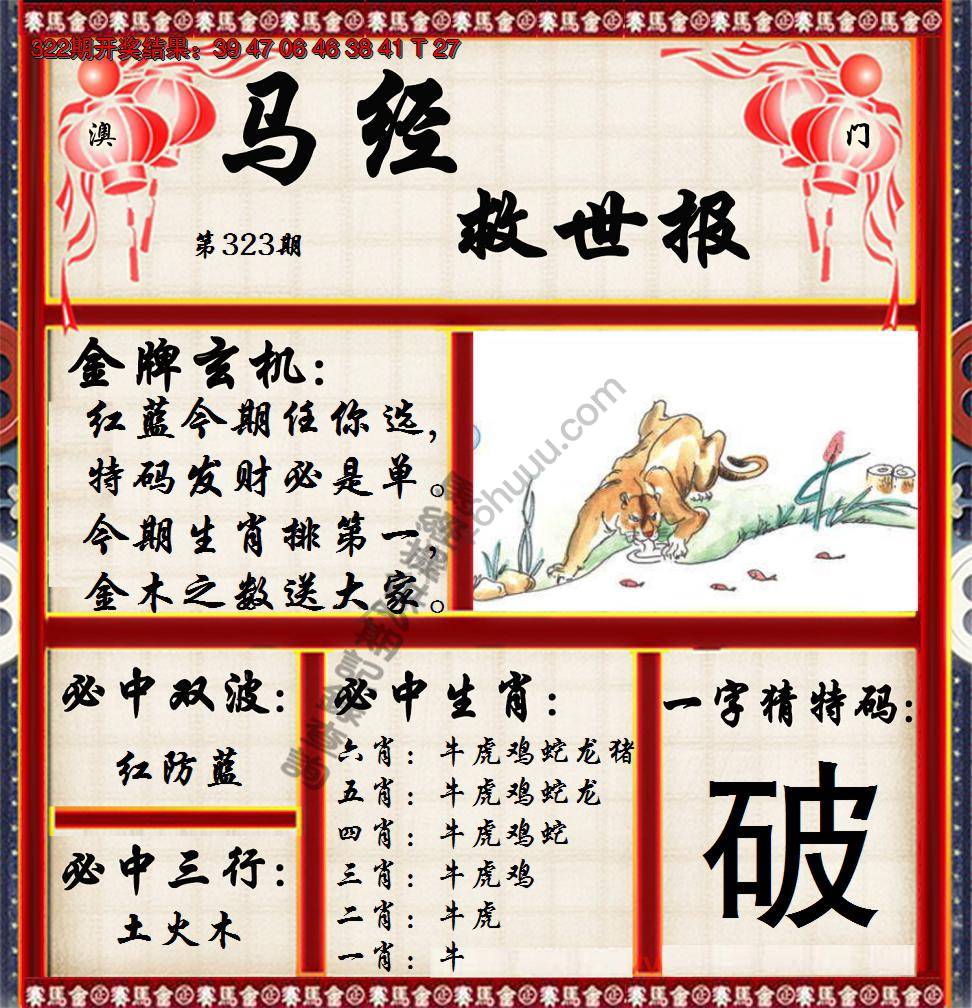 賽馬會 賽馬會 賽馬會 賽馬會 賽馬會 賽馬會 賽馬會 賽馬會
322期开奖结果：39 47 06 46 38 41 T 27
澳
门
马经
救世报
第323期
金牌玄机：
红蓝今期任你选，
特码发财必是单。
今期生肖排第一，
金木之数送大家。
必中双波：
红防蓝
必中三行：
土火木
必中生肖：
六肖：牛虎鸡蛇龙猪
五肖：牛虎鸡蛇龙
四肖：牛虎鸡蛇
三肖：牛虎鸡
二肖：牛虎
一肖：牛
一字猜特码：
破